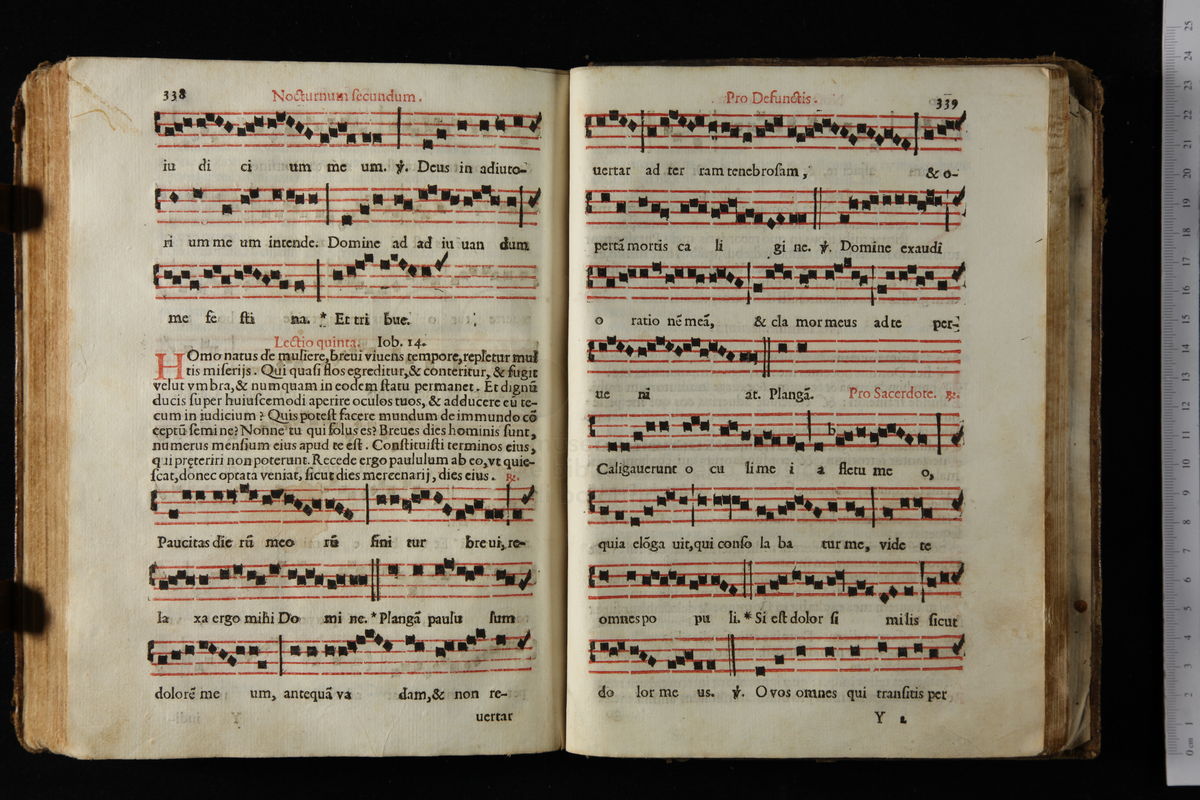 338
Nocturnum secundum.
iu di ci um me um. ℣. Deus in adiuto-
ri um me um intende. Domine ad ad iu uan dum
me fe sti na. * Et tri bue.
Lectio quinta. Iob. 14.
HOmo natus de muliere, breui viuens tempore, repletur mul
tis miserijs. Qui quasi flos egreditur, & conteritur, & fugit
velut vmbra, & numquam in eodem statu permanet. Et dignū
ducis super huiuscemodi aperire oculos tuos, & adducere eū te-
cum in iudicium? Quis potest facere mundum de immundo cō
ceptū semine? Nonne tu qui solus es? Breues dies hominis sunt,
numerus mensium eius apud te est. Constituisti terminos eius,
qui pręteriri non poterunt. Recede ergo paululum ab eo, vt quie-
scat, donec optata veniat, sicut dies mercenarij, dies eius. ℟.
Paucitas die rū meo rū fini tur breui, re-
la xa ergo mihi Do mi ne. * Plangā paulu sum
dolorē me um, antequā va dam, & non re-
uertar
Pro Defunctis.
339
uertar ad ter ram tenebrosam, & o-
pertā mortis ca li gi ne. ℣. Domine exaudi
o ratio nē meā, & cla mor meus ad te per-
ue ni at. Plangā. Pro Sacerdote. ℟.
Caligauerunt o cu li me i a fletu me o,
quia elōga uit, qui conso la ba tur me, vide te
omnes po pu li. * Si est dolor si milis sicut
do lor me us. ℣. O vos omnes qui transitis per
Y 2